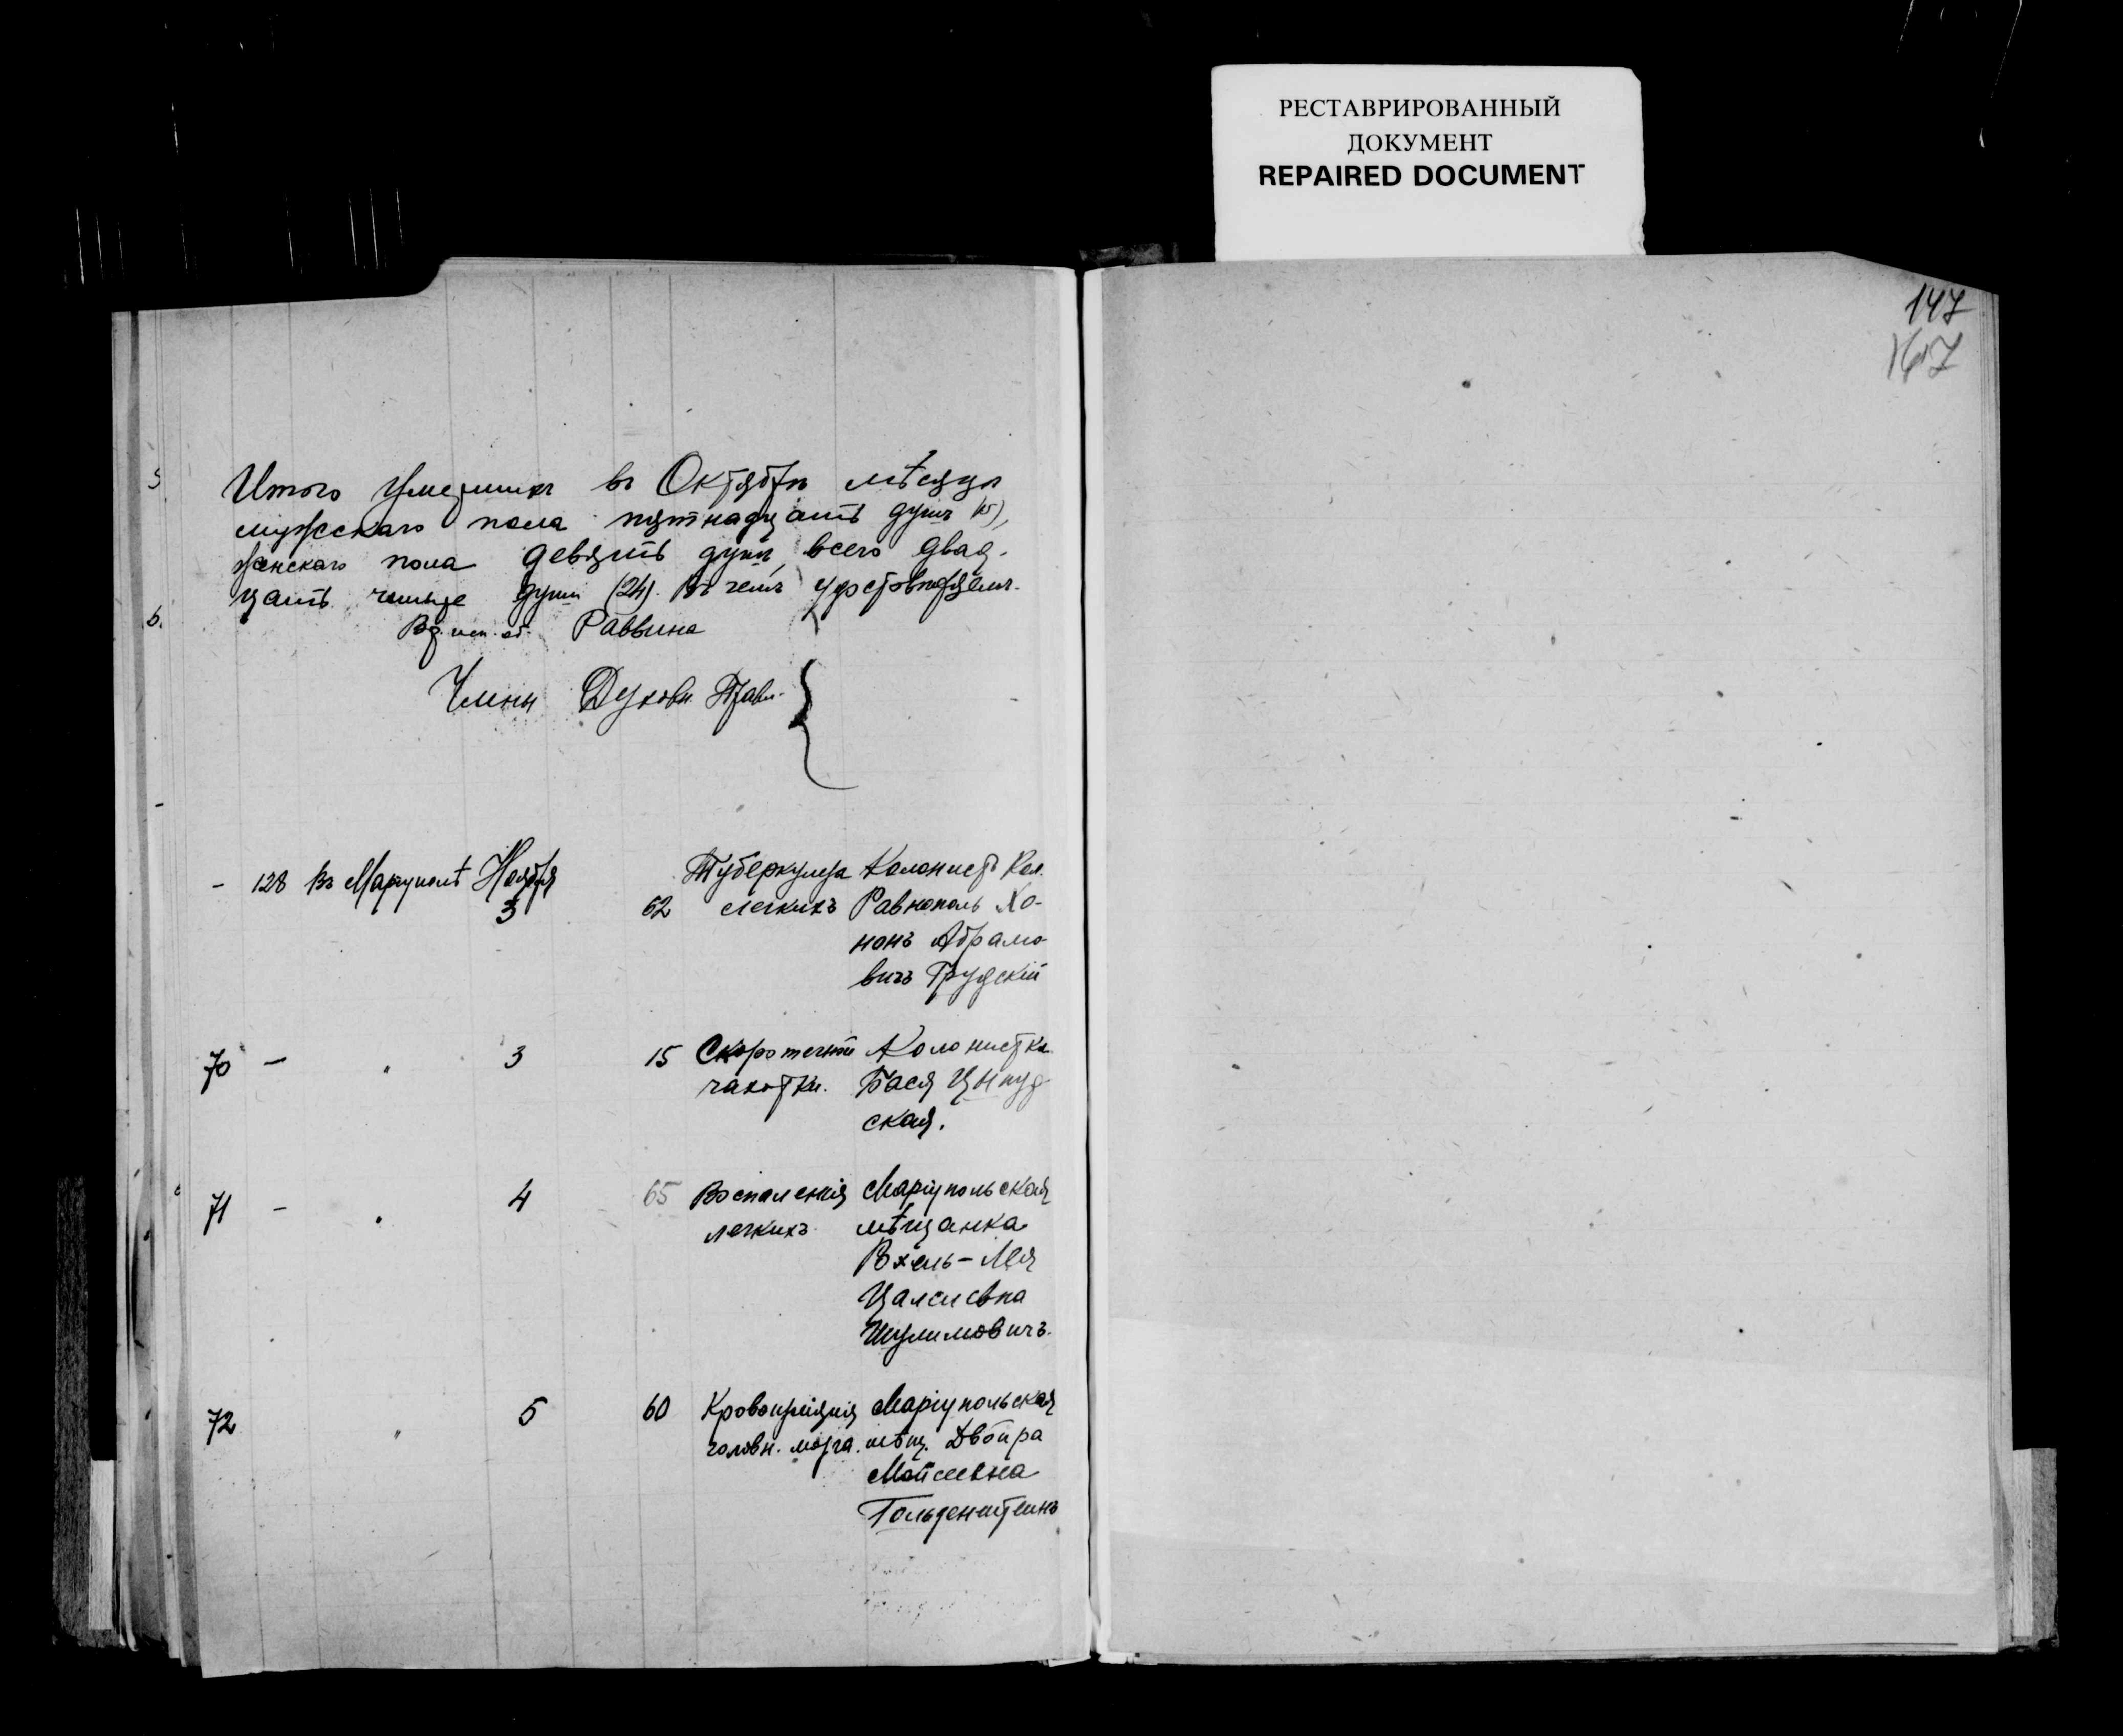 РЕСТАВРИРОВАННЫЙ
ДОКУМЕНТ
REPAIRED DOCUMENT
147
167
Итого умершихъ въ Октябрѣ мѣсяцѣ
мужскаго пола пятнадцать душъ (15),
женскаго пола девять душъ, всего двад-
цать четыре души (24). Въ чемъ удостовѣряемъ.
Вр. исп. об. Раввина
Члены Духовн. Правл.
- 128 Въ Маріуполѣ Ноября
3 62 Туберкулеза легкихъ Колонистъ Кол.
Равнополь Хо-
нонъ Абрамо-
вичъ Грудскій
70 - " 3 15 Скоротечной Колонистка
чахотки. Бася
ская.
71 - " 4 65 Воспаленія Маріупольская
легкихъ мѣщанка
Рохель-Лея
Шулимовичъ.
72 " 5 60 Кровоизліянія Маріупольская
головн. мозга. мѣщ. Двойра
Мойсеевна
Гольденштейнъ